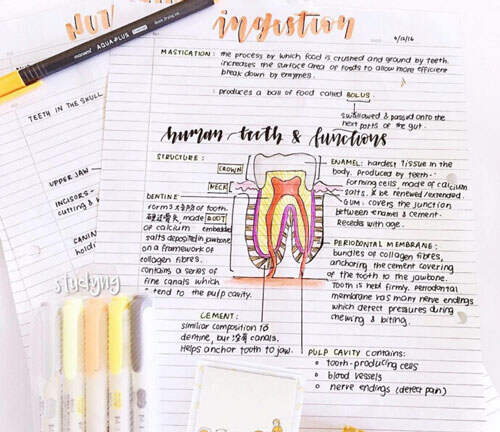 NUT
ingestion
MASTICATION: the process by which food is crushed and ground by teeth.
increases the surface area of foods to allow more efficient
break down by enzymes.
: produces a ball of food called BOLUS.
swallowed & passed onto the
next parts of the gut.
human teeth & functions
TEETH IN THE SKULL
UPPER JAW
INCISORS -
cutting &
CANIN
holdi
STRUCTURE:
CROWN
NECK
ROOT
DENTINE:
forms of tooth.
made
of calcium embedded
salts deposited in jawbone
on a framework of
collagen fibres.
contains a series of
fine canals which
tend to the pulp cavity.
ENAMEL: hardest tissue in the
body. Produced by teeth-
forming cells, made of calcium
salts. be renewed/extended.
GUM: covers the junction
between enamel & cement.
Recedes with age.
PERIODONTAL MEMBRANE:
bundles of collagen fibres,
anchoring the cement covering
of the tooth to the jawbone.
Tooth is held firmly. Periodontal
membrane has many nerve endings
which detect pressures during
chewing & biting.
CEMENT:
similiar composition to
dentine, but canals.
Helps anchor tooth to jaw.
PULP CAVITY contains:
tooth-producing cells
blood vessels
nerve endings (detect pain)
studying